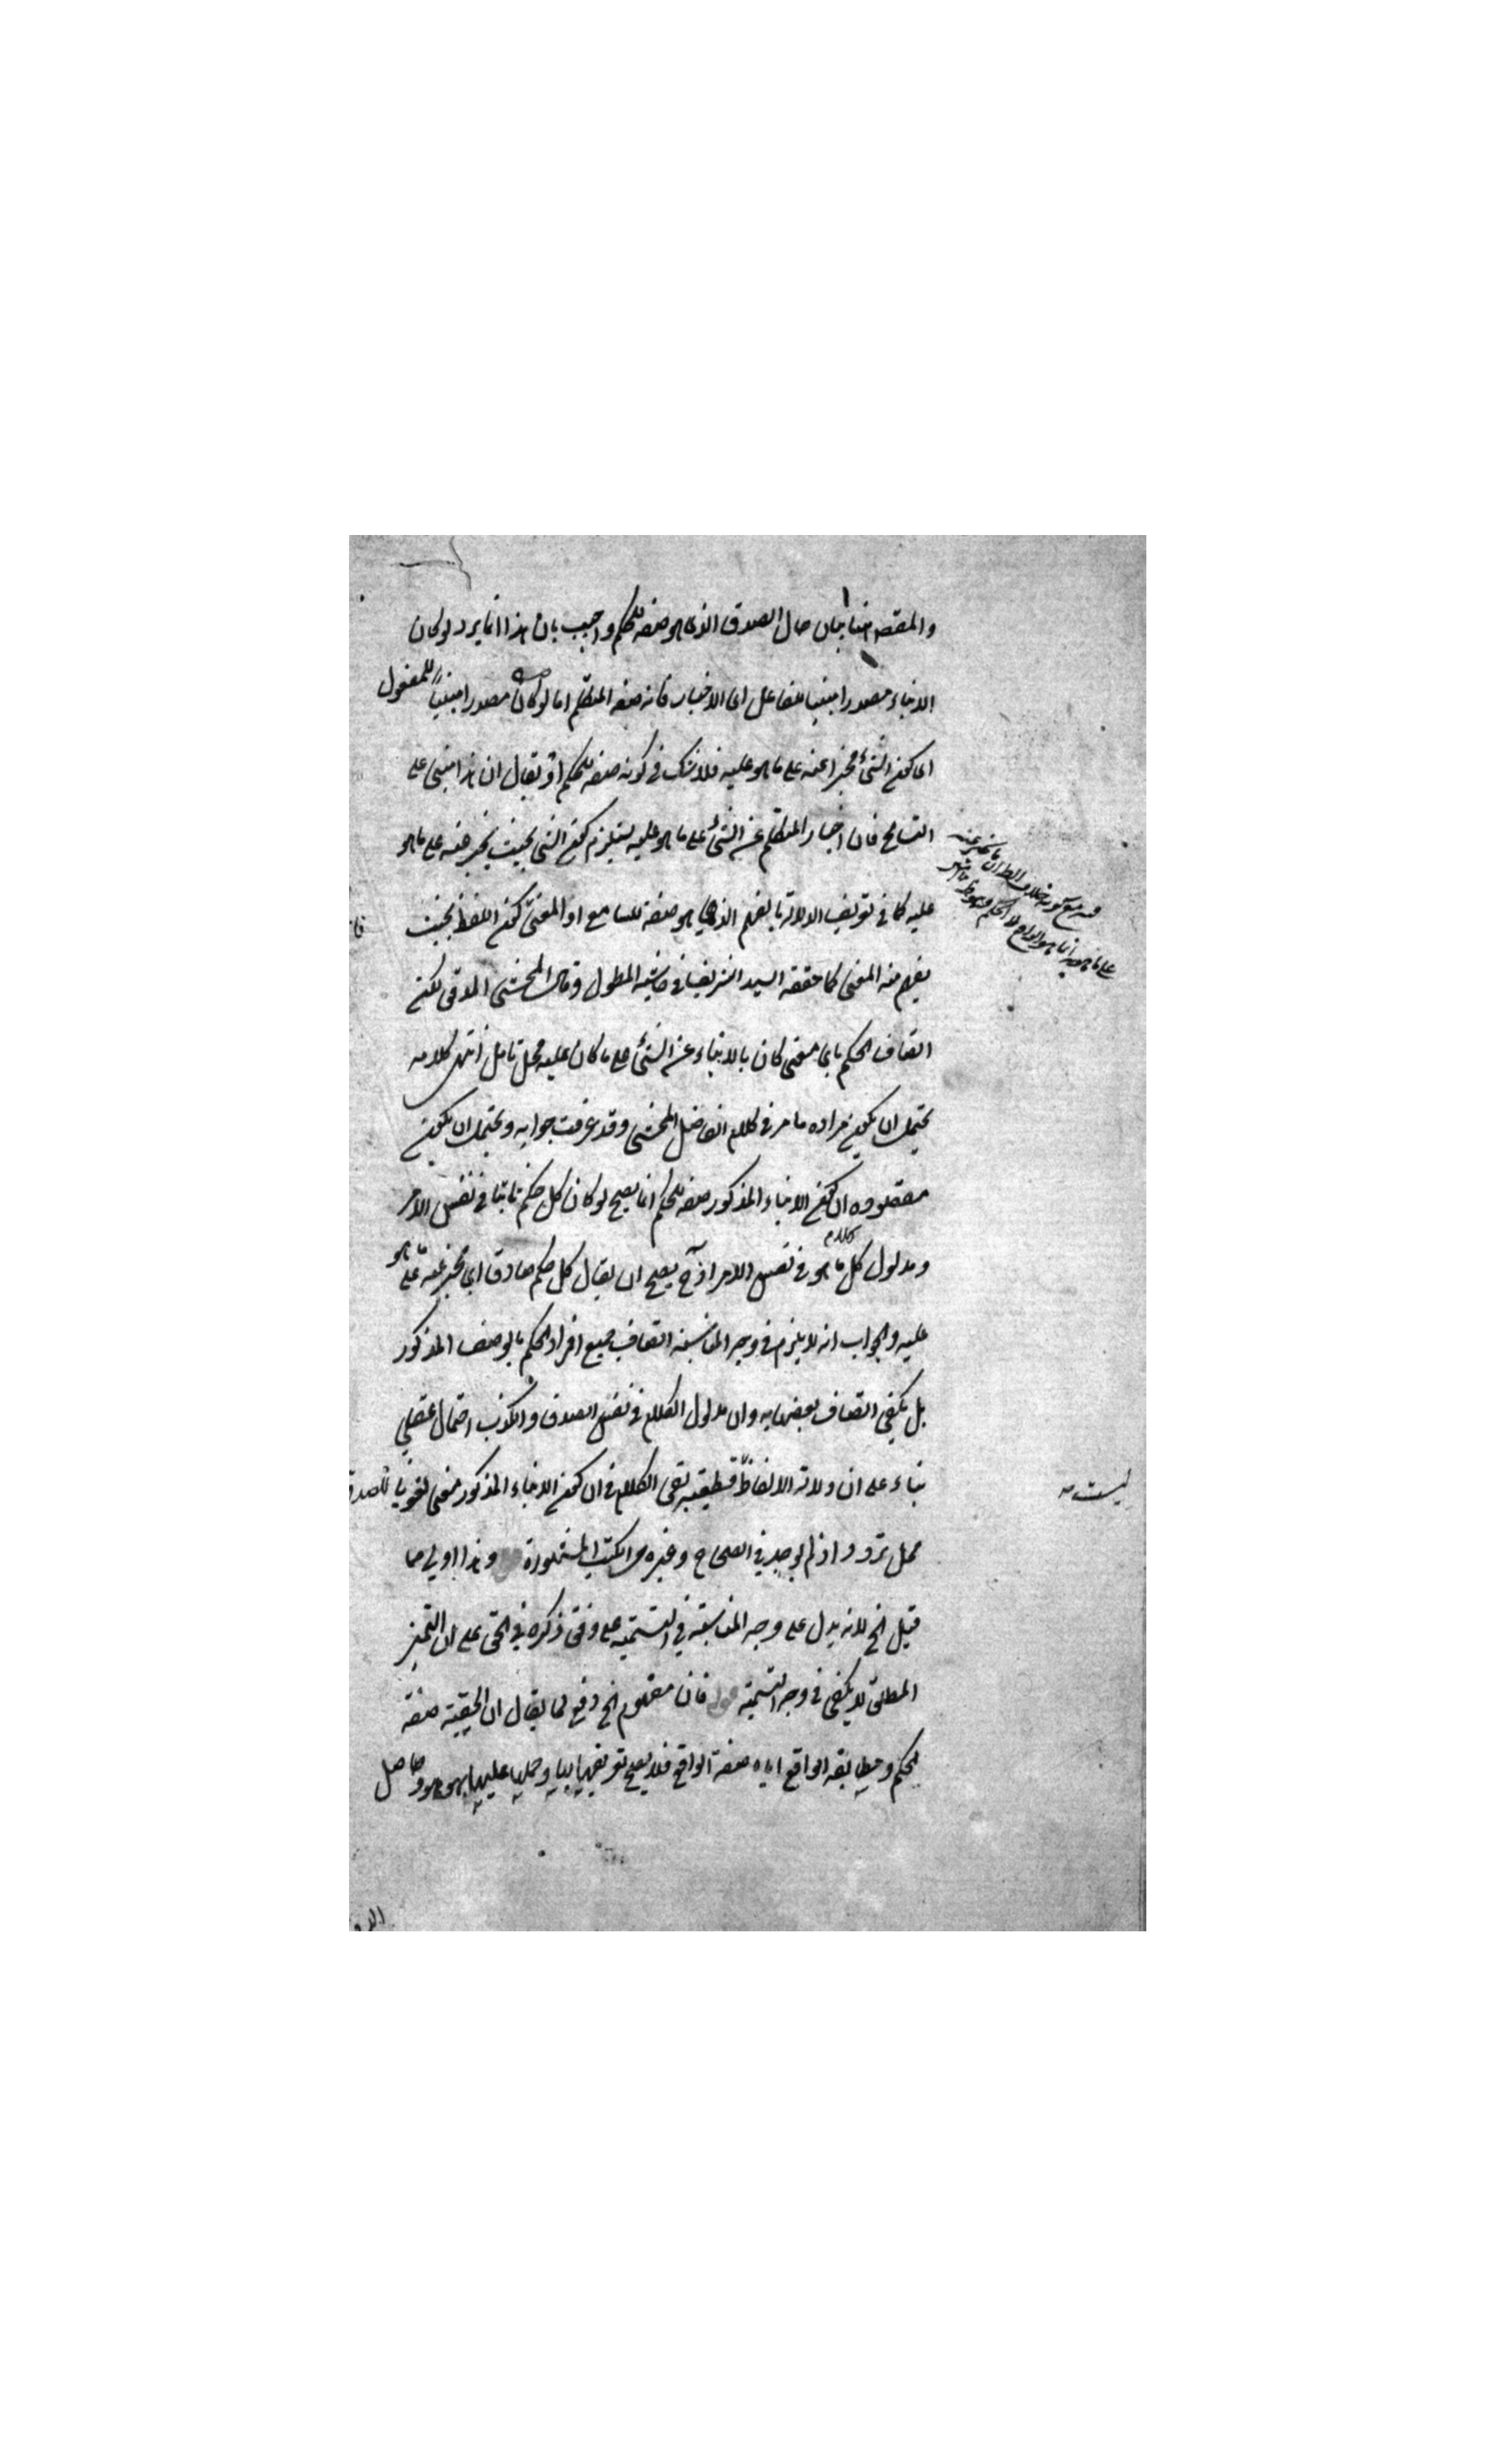 والمقصد هنا بيان حال الصدق الذى هو صفة للحكم واجيب بان هذا انما يرد لو كان
الانباء مصدرا مبنيا للفاعل اى الاخبار فانه صفة المتكلم اما لو كان مصدرا مبنياً للمفعول
اى كون الشئ مخبرا عنه على ما هو عليه فلا شك فى كونه صفة للحكم او يقال ان هذا مبنى على
التسامح فان اخبار المتكلم عن الشئ على ما هو عليه يستلزم كون الشئ بحيث يخبر عنه على ما هو
عليه كما فى تعريف الدلالة بالفهم الذى هو صفة للسامع او المعنى كون اللفظ بحيث
يفهم منه المعنى كما حققه السيد الشريف فى حاشية المطول وقال المحشى المدقق لكن
اتصاف الحكم باى معنى كان بالانباء عن الشئ على ما كان عليه محل تامل انتهى كلامه
يحتمل ان يكون مراده ما مر فى كلام الفاضل المحشى وقد عرفت جوابه ويحتمل ان يكون
مقصوده ان كون الانباء المذكور صفة للحكم انما يصح لو كان كل حكم ثابتا فى نفس الامر
ومدلول كل كلام ما هو فى نفس الامر اذ ح يصح ان يقال كل حكم صادق اى مخبر عنه على ما هو
عليه والجواب انه لا يلزم فى وجه المناسبة اتصاف جميع افراد الحكم بالوصف المذكور
بل يكفى اتصاف بعضها به وان مدلول الكلام فى نفس الصدق والكذب احتمال عقلى
بناء على ان دلالة الالفاظ قطعية بقى الكلام فى ان كون الانباء المذكور معنى لغويا للصدق
محل تردد اذ لم يوجد فى الصحاح وغيره من الكتب المشهورة وهذا اولى مما
قيل الخ لانه يدل على وجه المناسبة فى التسمية على وفق ذكره فى الحق على ان التميز
المطلق لا يكفى فى وجه التسمية فان مفهوم الخ دفع لما يقال ان الحقية صفة
الحكم ومطابقة الواقع اياه صفة الواقع فلا يصح تعريفها بها وحملها عليها بهو هو وحاصل
ليست